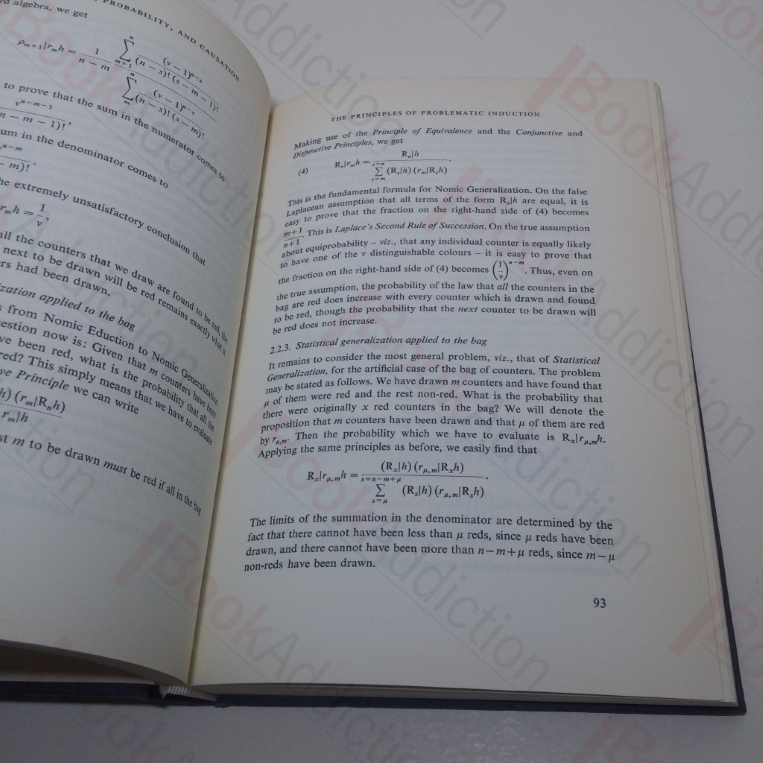 d algebra, we get
PROBABILITY, AND CAUSATION
ρₘ₊₁|rₘh = 1/(n − m) · Σ (v − 1)ⁿ⁻ˢ/((n − s)! (s − m − 1)!) / Σ (v − 1)ⁿ⁻ˢ/((n − s)! (s − m)!)
to prove that the sum in the numerator comes to
vⁿ⁻ᵐ⁻¹
n − m − 1)!
um in the denominator comes to
vⁿ⁻ᵐ
m)!
he extremely unsatisfactory conclusion that
rₘh = 1/v,
all the counters that we draw are found to be red, the
next to be drawn will be red remains exactly what it
rs had been drawn.
ization applied to the bag
from Nomic Eduction to Nomic Generalization
estion now is: Given that m counters have been
ve been red, what is the probability that all the
red? This simply means that we have to evaluate
ve Principle we can write
h) (rₘ|Rₙh)
rₘ|h
st m to be drawn must be red if all in the bag
THE PRINCIPLES OF PROBLEMATIC INDUCTION
Making use of the Principle of Equivalence and the Conjunctive and
Disjunctive Principles, we get
(4) Rₙ|rₘh = Rₙ|h / Σ (Rₛ|h) (rₘ|Rₛh).
This is the fundamental formula for Nomic Generalization. On the false
Laplacean assumption that all terms of the form Rₛ|h are equal, it is
easy to prove that the fraction on the right-hand side of (4) becomes
(m+1)/(n+1). This is Laplace's Second Rule of Succession. On the true assumption
about equiprobability – viz., that any individual counter is equally likely
to have one of the v distinguishable colours – it is easy to prove that
the fraction on the right-hand side of (4) becomes (1/v)ⁿ⁻ᵐ. Thus, even on
the true assumption, the probability of the law that all the counters in the
bag are red does increase with every counter which is drawn and found
to be red, though the probability that the next counter to be drawn will
be red does not increase.
2.2.3. Statistical generalization applied to the bag
It remains to consider the most general problem, viz., that of Statistical
Generalization, for the artificial case of the bag of counters. The problem
may be stated as follows. We have drawn m counters and have found that
μ of them were red and the rest non-red. What is the probability that
there were originally x red counters in the bag? We will denote the
proposition that m counters have been drawn and that μ of them are red
by r_μ,ₘ. Then the probability which we have to evaluate is Rₓ|r_μ,ₘh.
Applying the same principles as before, we easily find that
Rₓ|r_μ,ₘh = (Rₓ|h) (r_μ,ₘ|Rₓh) / Σ_{s=μ}^{s=n−m+μ} (Rₛ|h) (r_μ,ₘ|Rₛh).
The limits of the summation in the denominator are determined by the
fact that there cannot have been less than μ reds, since μ reds have been
drawn, and there cannot have been more than n−m+μ reds, since m−μ
non-reds have been drawn.
93
BookAddiction